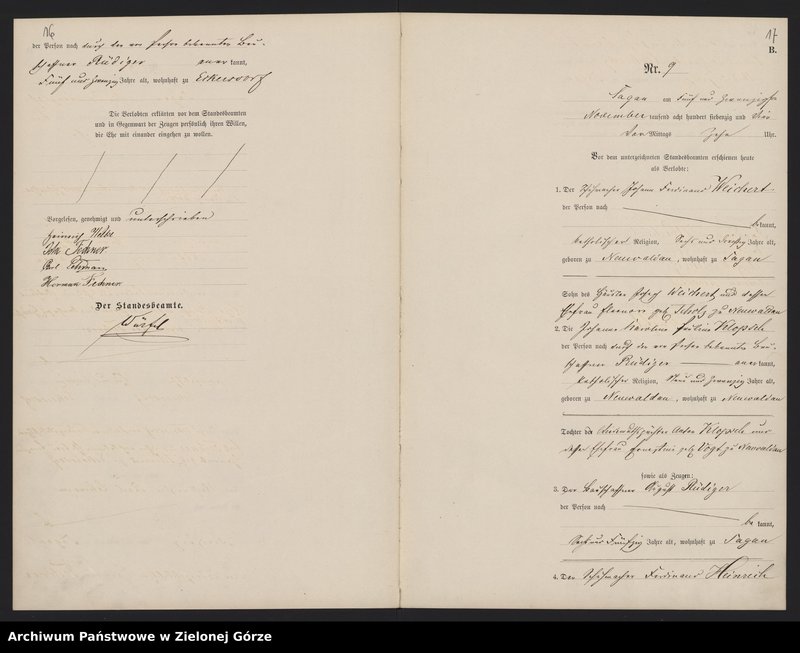 16
der Person nach durch den von Person bekannten Bau-
schaffner Rüdiger anerkannt,
Fünf und zwanzig Jahre alt, wohnhaft zu Eckersdorf
Die Verlobten erklärten vor dem Standesbeamten
und in Gegenwart der Zeugen persönlich ihren Willen,
die Ehe mit einander eingehen zu wollen.
Vorgelesen, genehmigt und unterschrieben
Heinrich
Fechner
Carl
Herman Fechner
Der Standesbeamte.
Würfel
17
B.
Nr. 9
Sagan am fünf und zwanzigsten
November tausend acht hundert siebenzig und vier
Vor Mittags Zehn Uhr.
Vor dem unterzeichneten Standesbeamten erschienen heute
als Verlobte:
1. Der Schuhmacher Johann Ferdinand Weichert
der Person nach
bekannt,
katholischer Religion, Sechs und dreißig Jahre alt,
geboren zu Neuwaldau, wohnhaft zu Sagan
Sohn des Häusler Josef Weichert und dessen
Ehefrau Eleonore geb. Scholz zu Neuwaldau
2. Die Johanne Karoline Pauline Klopsch
der Person nach durch den von Person bekannten Bau-
schaffner Rüdiger anerkannt,
katholischer Religion, Neun und zwanzig Jahre alt,
geboren zu Neuwaldau, wohnhaft zu Neuwaldau
Tochter des Anton Klopsch und
dessen Ehefrau Ernestine geb. Vogt zu Neuwaldau
sowie als Zeugen:
3. Der Bauschaffner August Rüdiger
der Person nach
bekannt,
Sechs und Fünfzig Jahre alt, wohnhaft zu Sagan
4. Der Schuhmacher Ferdinand Heinrich
Archiwum Państwowe w Zielonej Górze